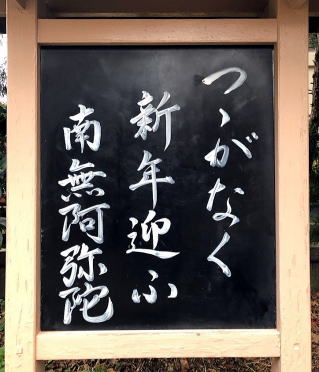 つゝがなく
新年迎ふ
南無阿弥陀